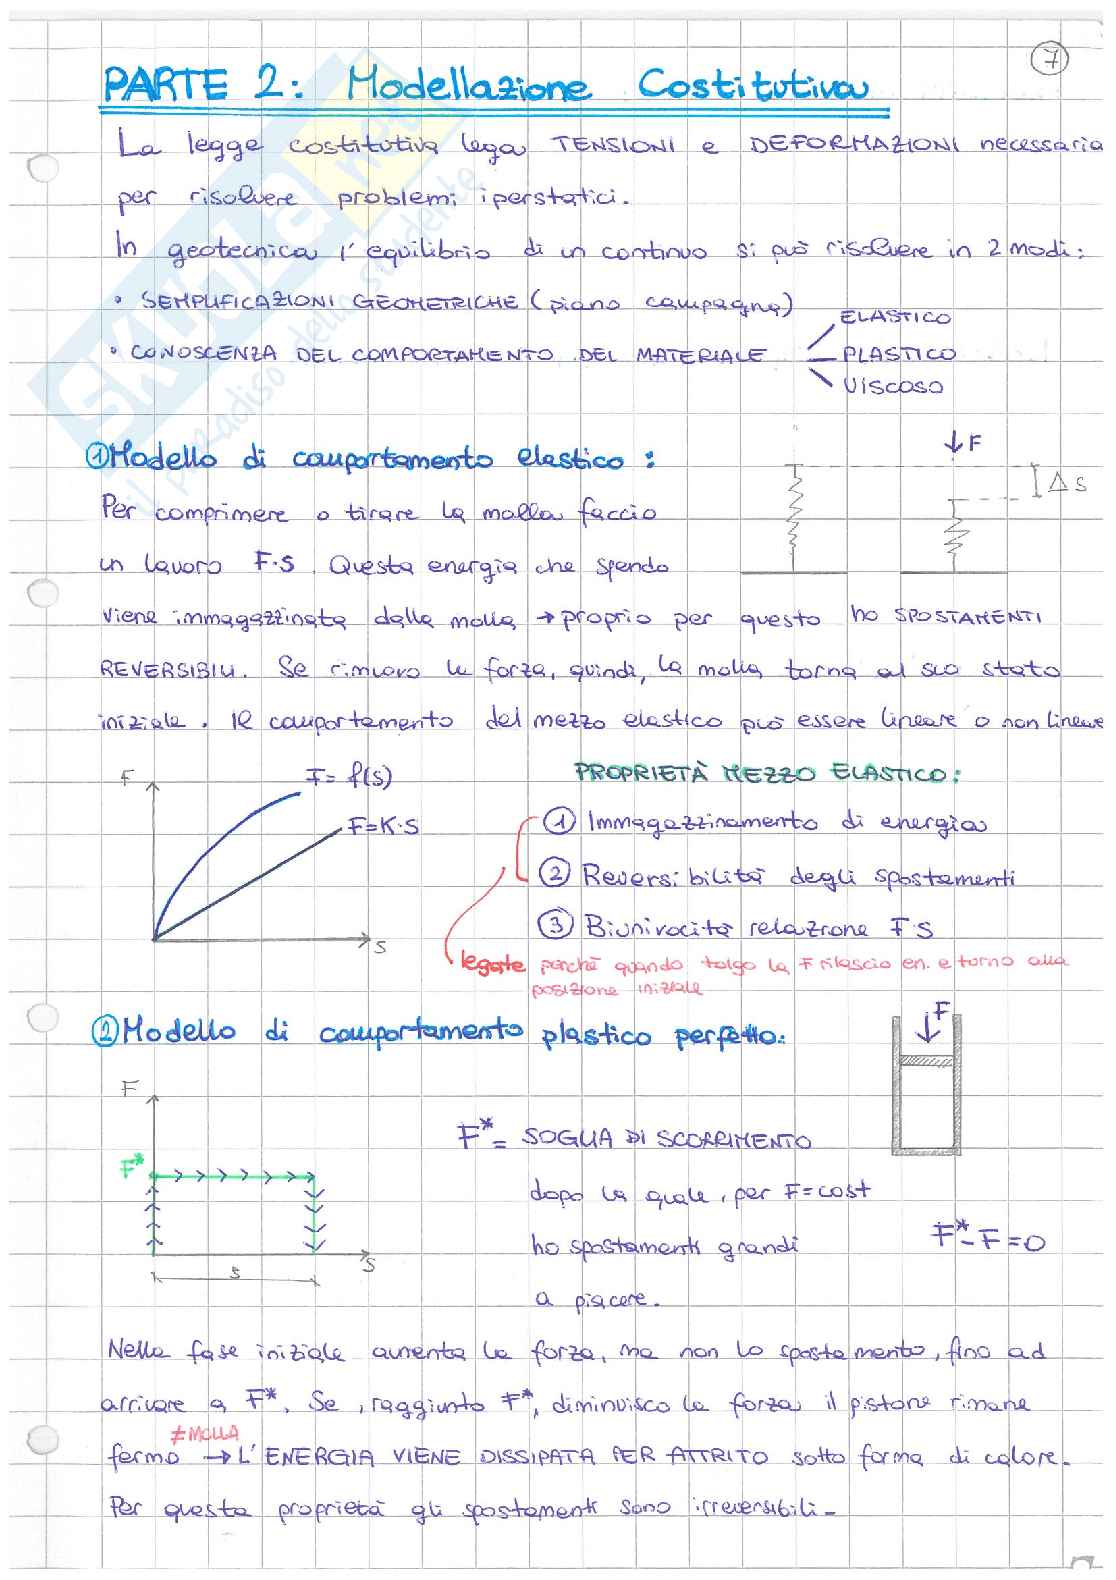 7
PARTE 2: Modellazione Costitutiva
La legge costitutiva lega TENSIONI e DEFORMAZIONI necessaria
per risolvere problemi iperstatici.
In geotecnica l'equilibrio di un continuo si può risolvere in 2 modi:
• SEMPLIFICAZIONI GEOMETRICHE (piano campagna)
• CONOSCENZA DEL COMPORTAMENTO DEL MATERIALE
ELASTICO
PLASTICO
VISCOSO
SKUOLA.net
il paradiso dello studente
① Modello di comportamento elastico:
F
ΔS
Per comprimere o tirare la molla faccio
un lavoro F·S. Questa energia che spendo
viene immagazzinata dalla molla → proprio per questo ho SPOSTAMENTI
REVERSIBILI. Se rimuovo la forza, quindi, la molla torna al suo stato
iniziale. Il comportamento del mezzo elastico può essere lineare o non lineare
F
F = f(s)
F=K·S
S
PROPRIETÀ MEZZO ELASTICO:
① Immagazzinamento di energia
② Reversibilità degli spostamenti
③ Biunivocità relazione F S
legate perché quando tolgo la F rilascio en. e torno alla
posizione iniziale
② Modello di comportamento plastico perfetto:
F
F
F*
S
s
F* = SOGLIA DI SCORRIMENTO
dopo la quale, per F=cost
ho spostamenti grandi
a piacere.
F* - F = 0
Nella fase iniziale aumenta la forza, ma non lo spostamento, fino ad
arrivare a F*. Se, raggiunto F*, diminuisco la forza il pistone rimane
≠ MOLLA
fermo → L'ENERGIA VIENE DISSIPATA PER ATTRITO sotto forma di calore.
Per questa proprietà gli spostamenti sono irreversibili.